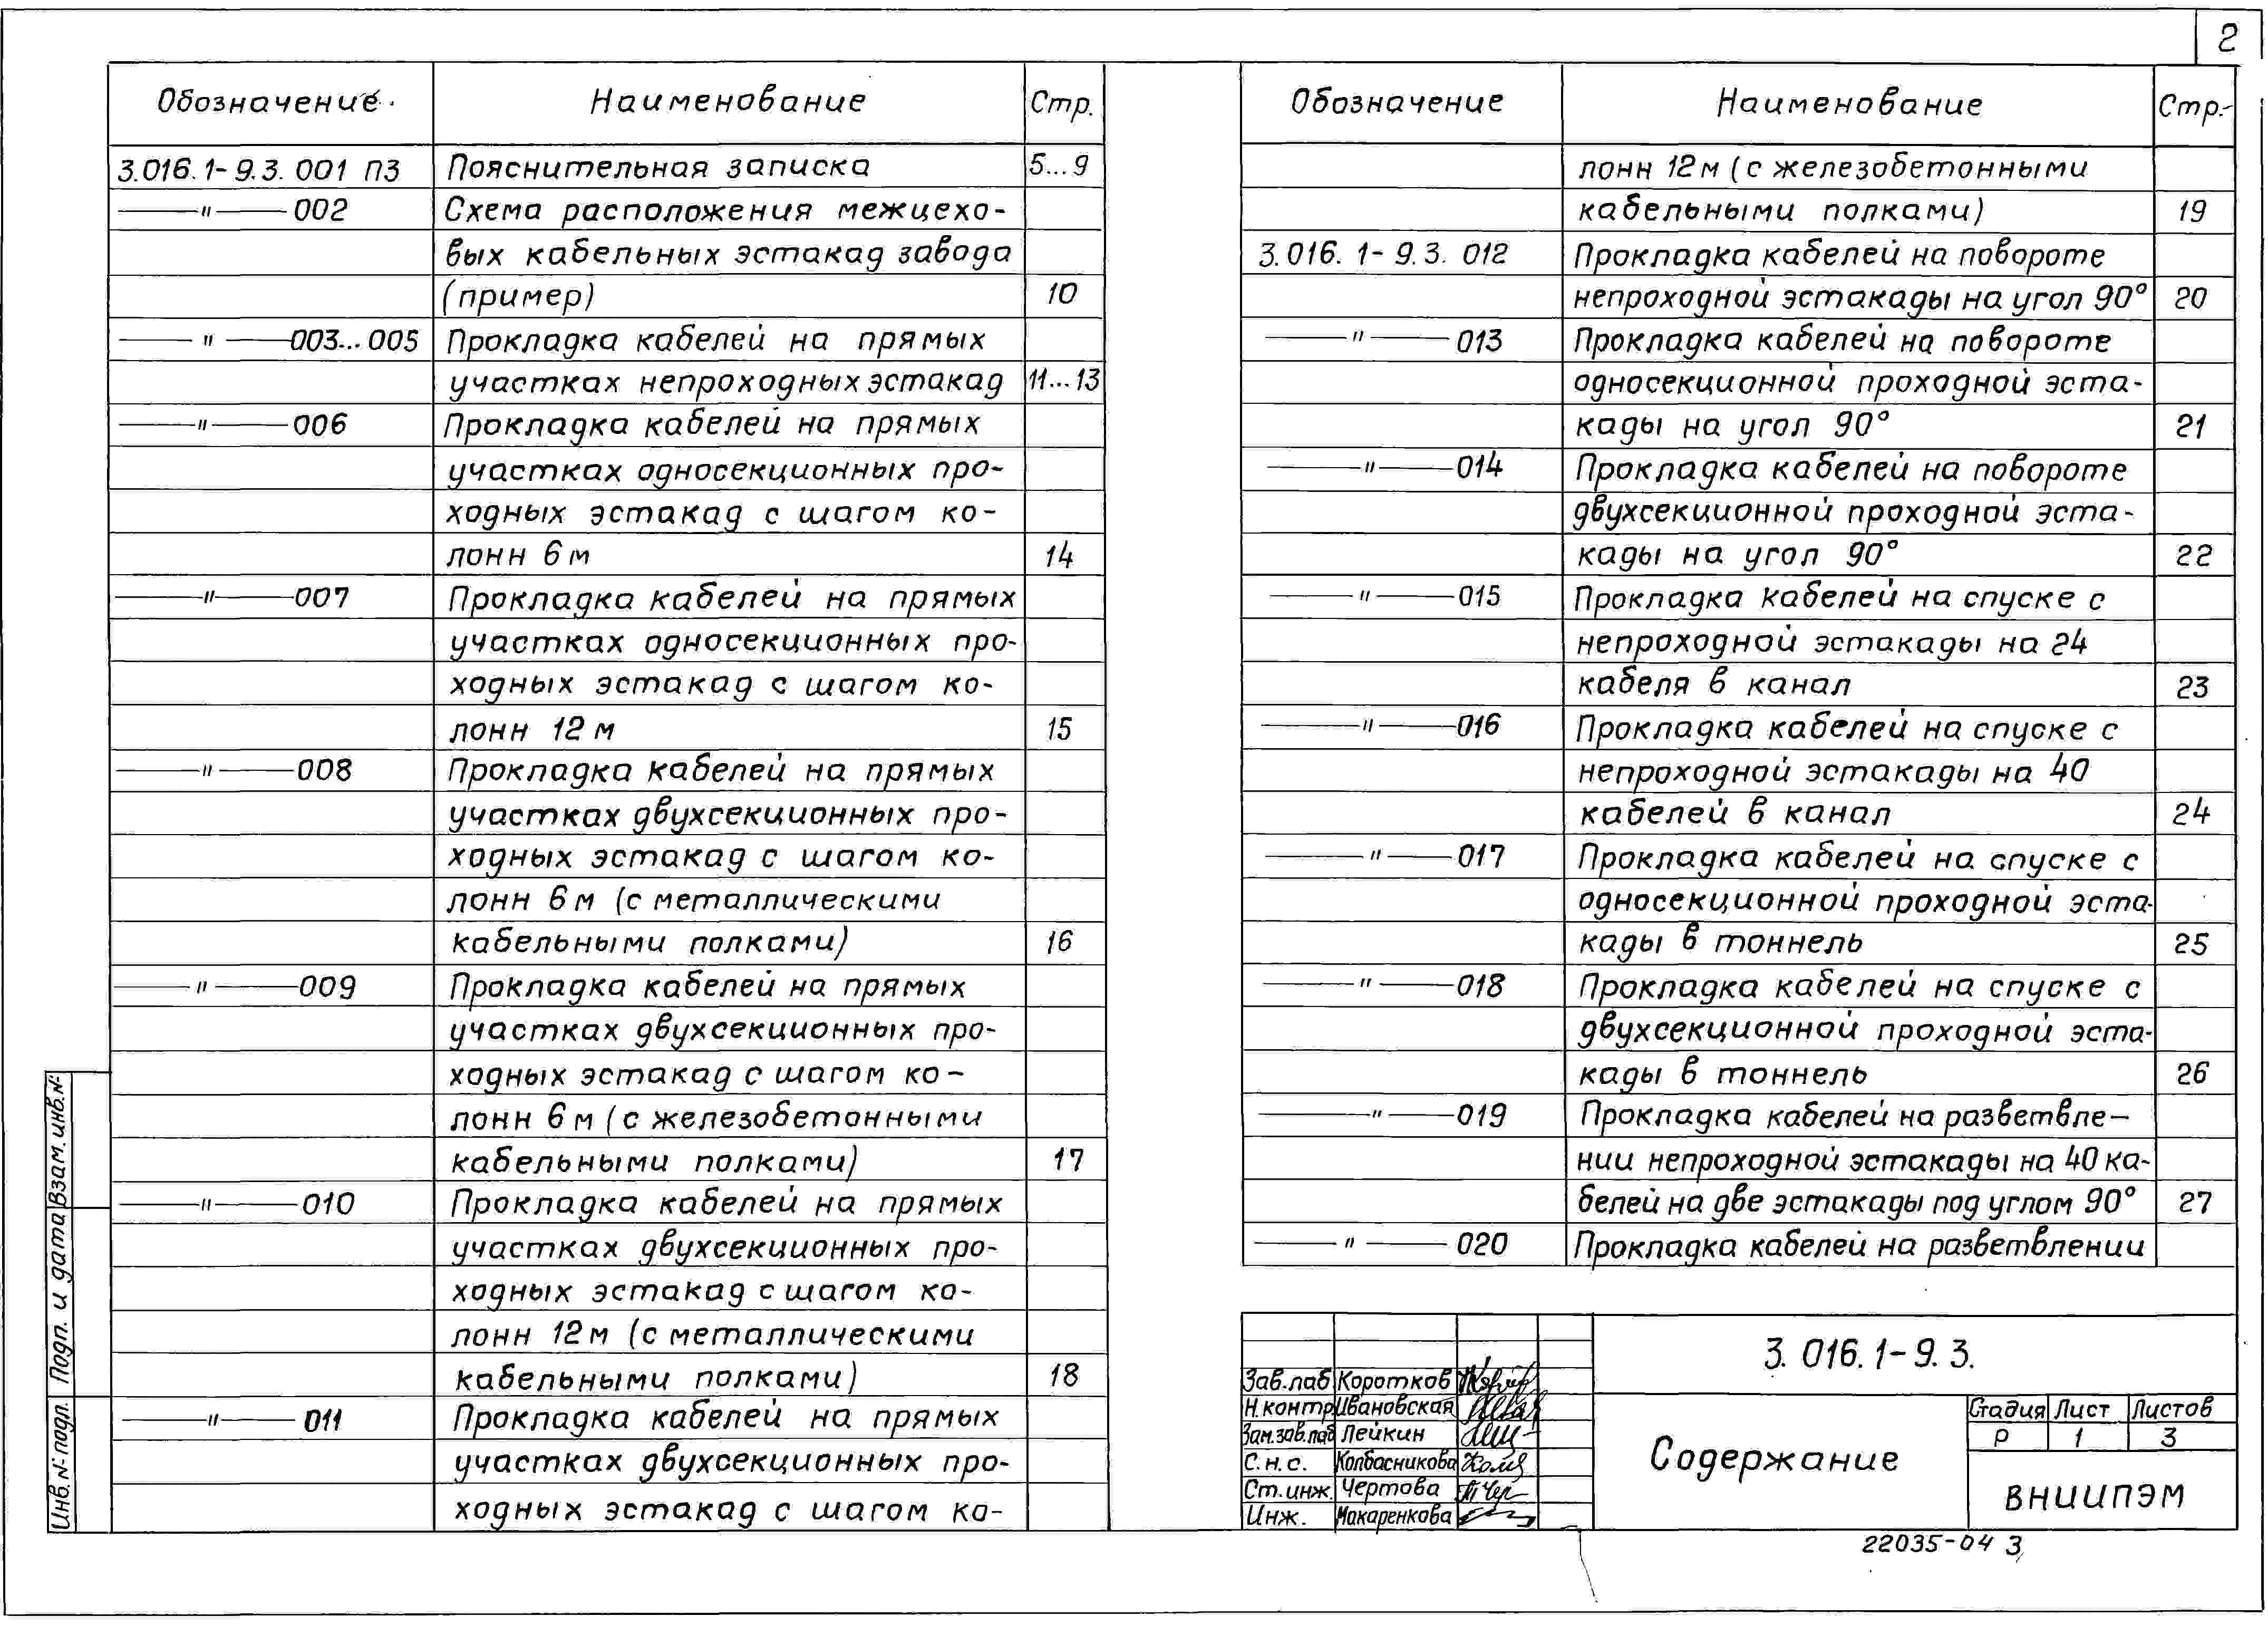 2
Обозначение Наименование Стр.
3.016.1-9.3. 001 ПЗ Пояснительная записка 5...9
—"— 002 Схема расположения межцехо-
вых кабельных эстакад завода
(пример) 10
—"— 003...005 Прокладка кабелей на прямых
участках непроходных эстакад 11...13
—"— 006 Прокладка кабелей на прямых
участках односекционных про-
ходных эстакад с шагом ко-
лонн 6 м 14
—"— 007 Прокладка кабелей на прямых
участках односекционных про-
ходных эстакад с шагом ко-
лонн 12 м 15
—"— 008 Прокладка кабелей на прямых
участках двухсекционных про-
ходных эстакад с шагом ко-
лонн 6 м (с металлическими
кабельными полками) 16
—"— 009 Прокладка кабелей на прямых
участках двухсекционных про-
ходных эстакад с шагом ко-
лонн 6 м (с железобетонными
кабельными полками) 17
—"— 010 Прокладка кабелей на прямых
участках двухсекционных про-
ходных эстакад с шагом ко-
лонн 12 м (с металлическими
кабельными полками) 18
—"— 011 Прокладка кабелей на прямых
участках двухсекционных про-
ходных эстакад с шагом ко-
Обозначение Наименование Стр.
лонн 12 м (с железобетонными
кабельными полками) 19
3.016.1-9.3. 012 Прокладка кабелей на повороте
непроходной эстакады на угол 90° 20
—"— 013 Прокладка кабелей на повороте
односекционной проходной эста-
кады на угол 90° 21
—"— 014 Прокладка кабелей на повороте
двухсекционной проходной эста-
кады на угол 90° 22
—"— 015 Прокладка кабелей на спуске с
непроходной эстакады на 24
кабеля в канал 23
—"— 016 Прокладка кабелей на спуске с
непроходной эстакады на 40
кабелей в канал 24
—"— 017 Прокладка кабелей на спуске с
односекционной проходной эста-
кады в тоннель 25
—"— 018 Прокладка кабелей на спуске с
двухсекционной проходной эста-
кады в тоннель 26
—"— 019 Прокладка кабелей на разветвле-
нии непроходной эстакады на 40 ка-
белей на две эстакады под углом 90° 27
—"— 020 Прокладка кабелей на разветвлении
Взам. инв. №
Подп. и дата
Инв. № подл.
3.016.1-9.3.
Зав.лаб Коротков
Н.контр Ивановская
Зам.зав.лаб Лейкин
С.н.с. Колбасникова
Ст.инж. Чертова
Инж. Макаренкова
Содержание
Стадия Лист Листов
Р 1 3
ВНИИПЭМ
22035-04 3